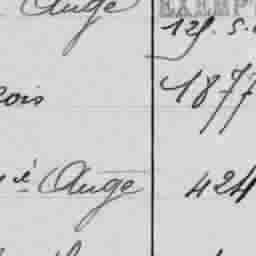 Auge
EXEMP
12f. 5.
cois
1877
Auge
424